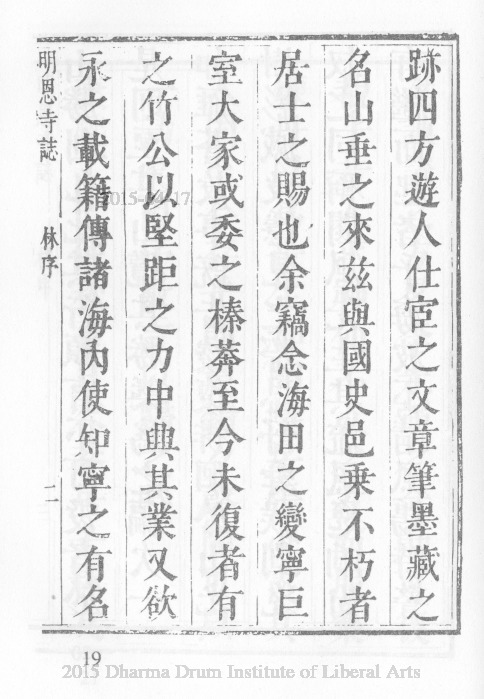 跡四方遊人仕宦之文章筆墨藏之
名山垂之來玆與國史邑乗不朽者
居士之賜也余竊念海田之變寧巨
室大家或委之榛莽至今未復者有
之竹公以堅距之力中興其業又欲
永之載籍傳諸海內使知寧之有名
明恩寺誌
林序
二
2015-04-17
19
2015 Dharma Drum Institute of Liberal Arts